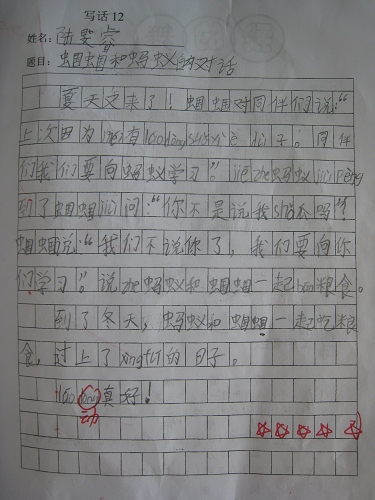 写话12
姓名：陆雯睿
题目：蝈蝈和蚂蚁的对话
夏天又来了！蝈蝈对同伴们说：“
上次因为
们我们要向蚂蚁学习”。zhe蚂蚁
到了蝈蝈jiù问：“你不是说我shǎ瓜吗”？
蝈蝈说：“我们不说你了，我们要向你
们学习”。说zhe蚂蚁和蝈蝈一起bān粮食。
到了冬天，蚂蚁和蝈蝈一起吃粮
食，过上了xìngfú的日子。
真好！
动